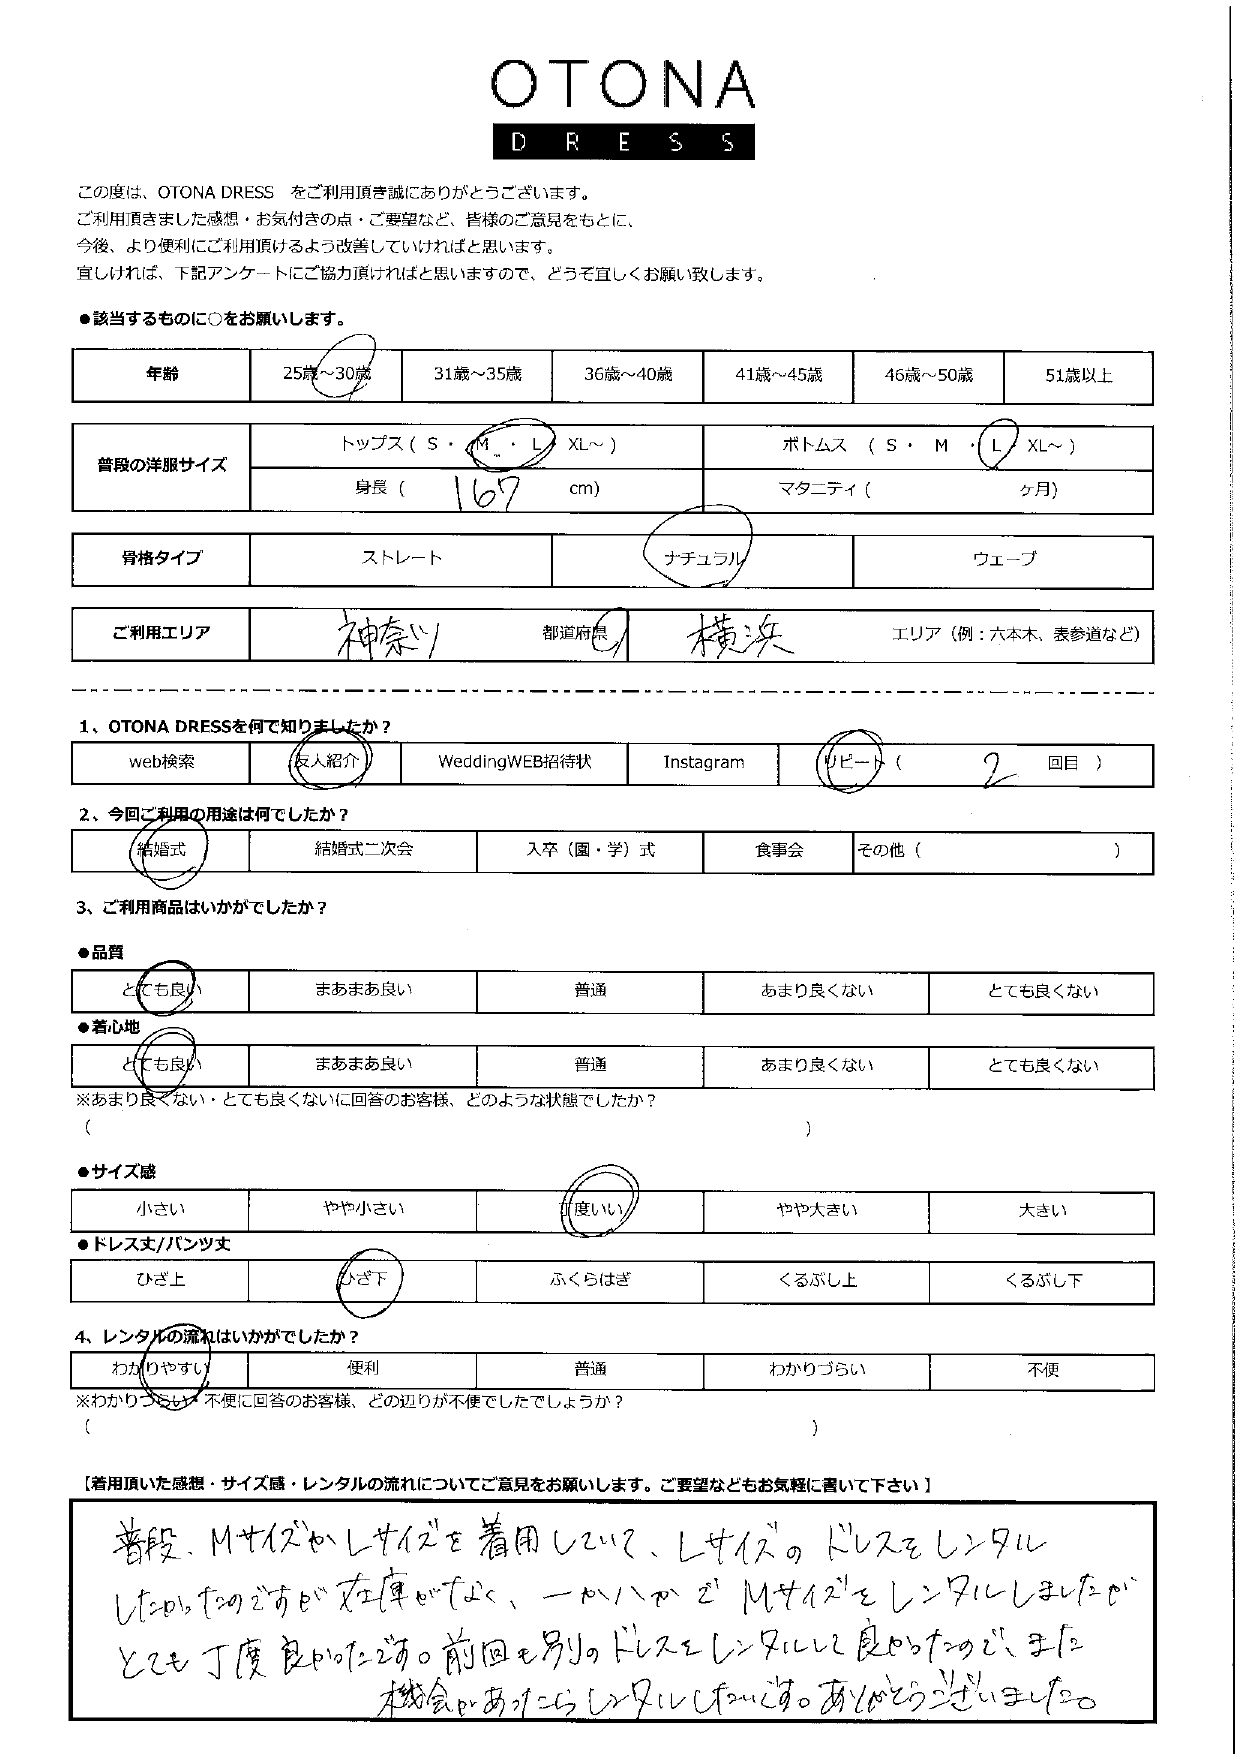 OTONA
DRESS
この度は、OTONA DRESS をご利用頂き誠にありがとうございます。
ご利用頂きました感想・お気付きの点・ご要望など、皆様のご意見をもとに、
今後、より便利にご利用頂けるよう改善していければと思います。
宜しければ、下記アンケートにご協力頂ければと思いますので、どうぞ宜しくお願い致します。
●該当するものに○をお願いします。
年齢 25歳～30歳 31歳～35歳 36歳～40歳 41歳～45歳 46歳～50歳 51歳以上
普段の洋服サイズ トップス（ S ・ M ・ L ・ XL～ ） ボトムス （ S ・ M ・ L ・ XL～ ）
身長（ 167 cm） マタニティ（ ケ月）
骨格タイプ ストレート ナチュラル ウェーブ
ご利用エリア 神奈川 都道府県 横浜 エリア（例：六本木、表参道など）
1、OTONA DRESSを何で知りましたか？
web検索 友人紹介 WeddingWEB招待状 Instagram リピート（ 2 回目 ）
2、今回ご利用の用途は何でしたか？
結婚式 結婚式二次会 入卒（園・学）式 食事会 その他（ ）
3、ご利用商品はいかがでしたか？
●品質
とても良い まあまあ良い 普通 あまり良くない とても良くない
●着心地
とても良い まあまあ良い 普通 あまり良くない とても良くない
※あまり良くない・とても良くないに回答のお客様、どのような状態でしたか？
（ ）
●サイズ感
小さい やや小さい 丁度いい やや大きい 大きい
●ドレス丈/パンツ丈
ひざ上 ひざ下 ふくらはぎ くるぶし上 くるぶし下
4、レンタルの流れはいかがでしたか？
わかりやすい 便利 普通 わかりづらい 不便
※わかりづらい・不便に回答のお客様、どの辺りが不便でしたでしょうか？
（ ）
【着用頂いた感想・サイズ感・レンタルの流れについてご意見をお願いします。ご要望などもお気軽に書いて下さい】
普段、MサイズかLサイズを着用していて、Lサイズのドレスをレンタル
したかったのですが在庫がなく、一か八かでMサイズをレンタルしましたが
とても丁度良かったです。前回も別のドレスをレンタルして良かったので、また
機会があったらレンタルしたいです。ありがとうございました。